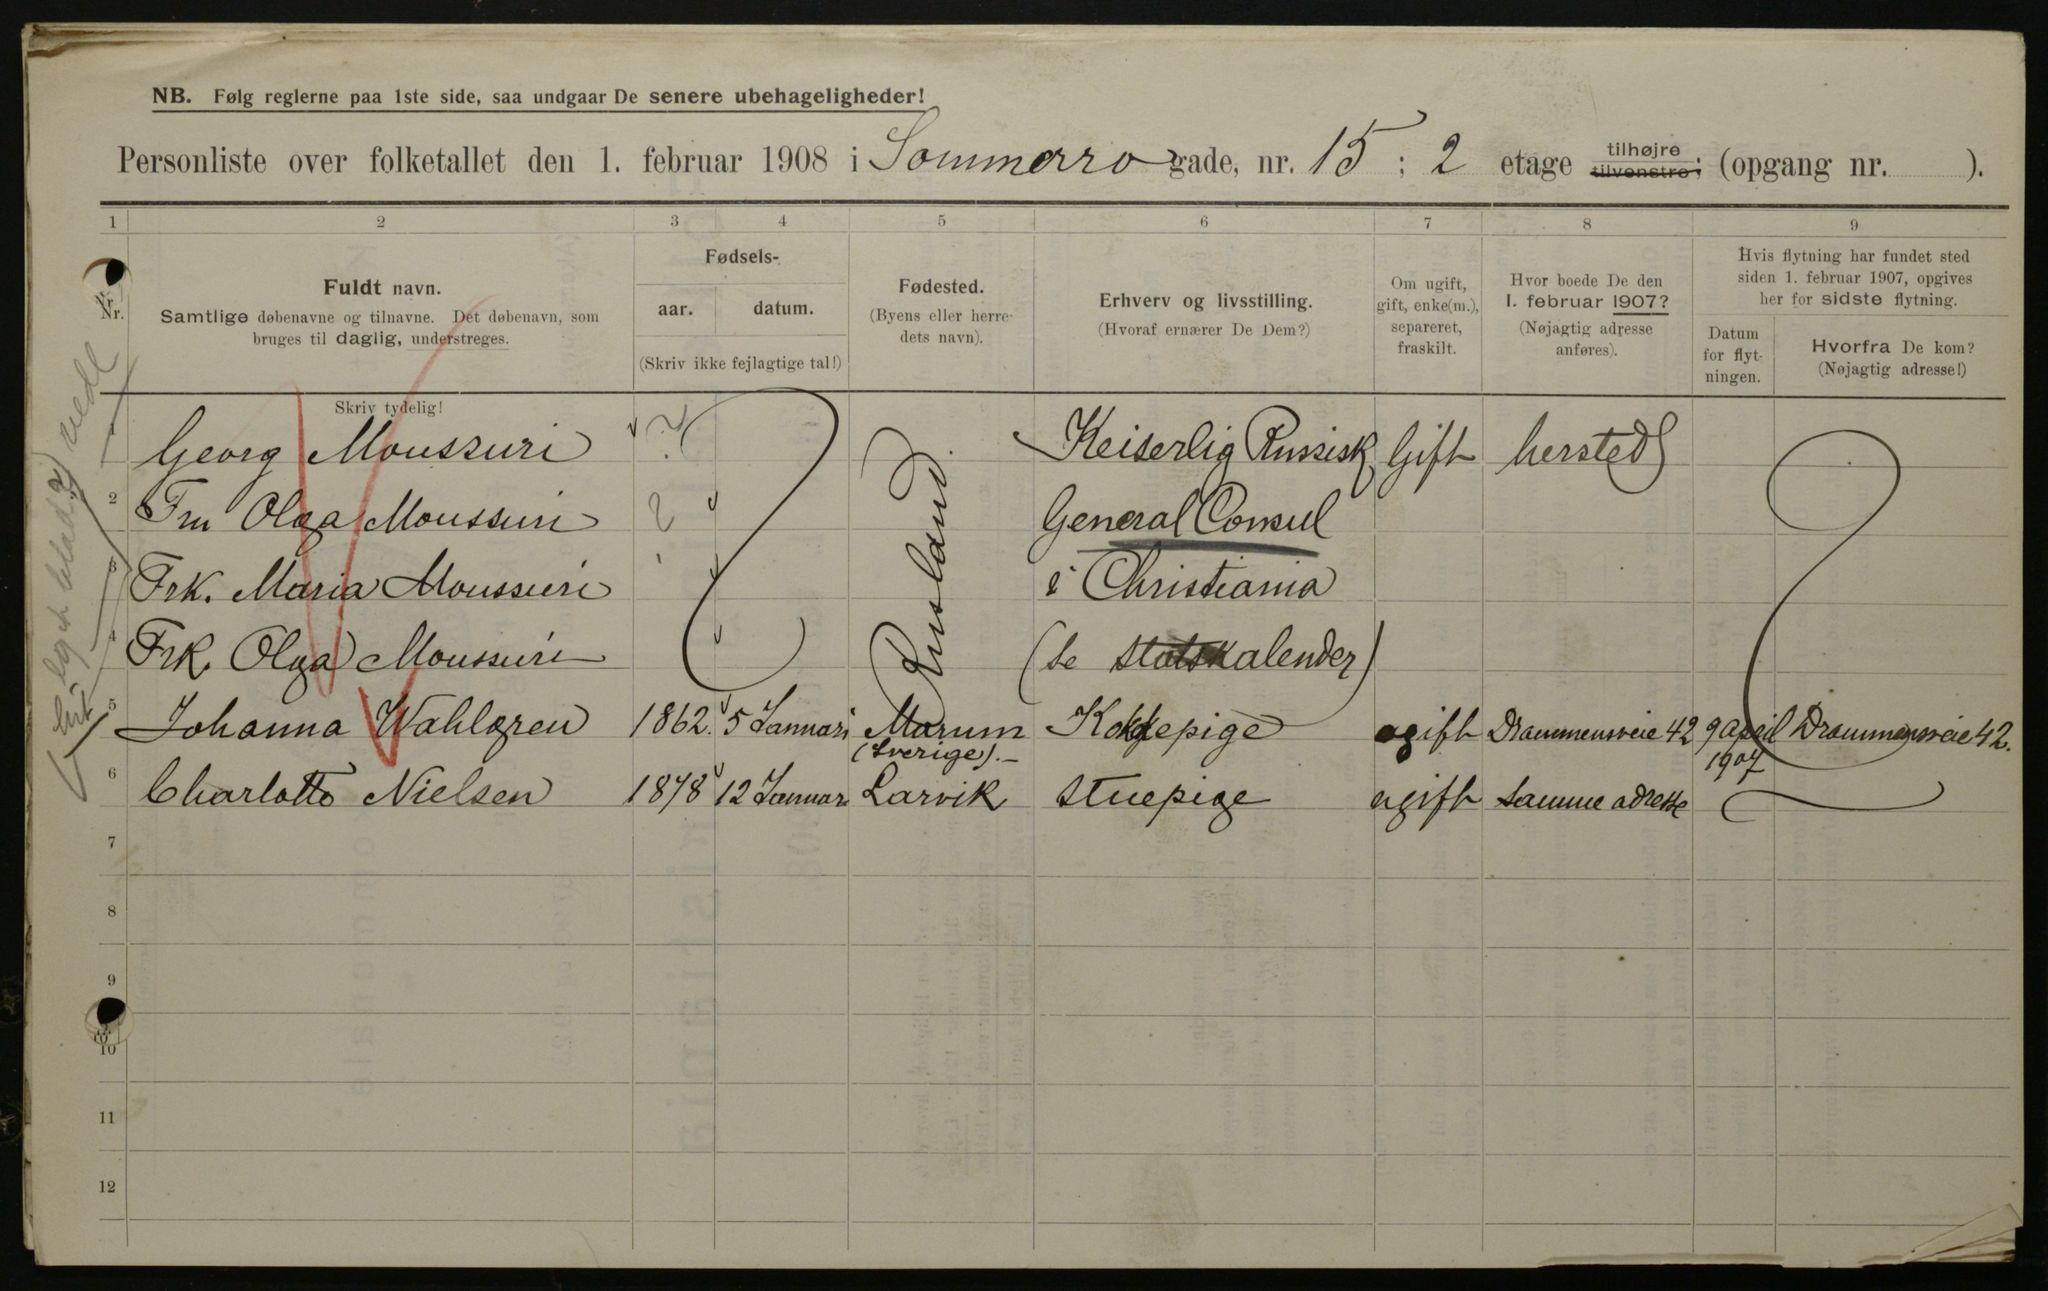 NB. Følg reglerne paa 1ste side, saa undgaar De senere ubehageligheder!
Personliste over folketallet den 1. februar 1908 i Sommerro gade, nr. 15 ; 2 etage tilhøjre tilvenstre; (opgang nr. ).
1 2 3 4 5 6 7 8 9
Nr.
Fuldt navn.
Samtlige døbenavne og tilnavne. Det døbenavn, som
bruges til daglig, understreges.
Skriv tydelig!
Fødsels-
aar. datum.
(Skriv ikke fejlagtige tal!)
Fødested.
(Byens eller herre-
dets navn).
Erhverv og livsstilling.
(Hvoraf ernærer De Dem?)
Om ugift,
gift, enke(m.),
separeret,
fraskilt.
Hvor boede De den
1. februar 1907?
(Nøjagtig adresse
anføres).
Hvis flytning har fundet sted
siden 1. februar 1907, opgives
her for sidste flytning.
Datum
for flyt-
ningen.
Hvorfra De kom?
(Nøjagtig adresse!)
1 Georg Moussuri ? Rusland. Keiserlig Russisk Gift hersteds
2 Fru Olga Moussuri ? General Consul
3 Frk. Maria Moussuri i Christiania
4 Frk. Olga Moussuri (se statskalender)
5 Johanna Wahlgren 1862. 5 Januari Marum (Sverige).- Kokkepige ugift Drammensveie 42 9 april 1907 Drammensveie 42.
6 Charlotte Nielsen 1878 12 Januari Larvik stuepige ugift samme adresse
7
8
9
10
11
12